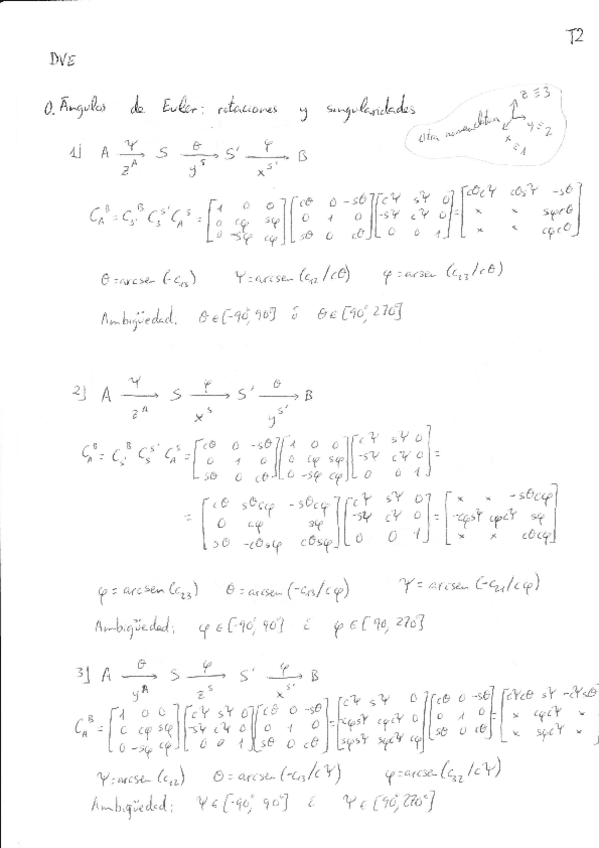 T2
DVE
0. Ángulos de Euler: rotaciones y singularidades
otra nomenclatura
z ≡ 3
y ≡ 2
x ≡ 1
1) A Ψ/z^A → S θ/y^S → S' φ/x^S' → B
C_A^B = C_S'^B C_S^S' C_A^S = [1 0 0; 0 cφ sφ; 0 -sφ cφ] [cθ 0 -sθ; 0 1 0; sθ 0 cθ] [cΨ sΨ 0; -sΨ cΨ 0; 0 0 1] = [cθcΨ cθsΨ -sθ; × × sφcθ; × × cφcθ]
θ = arcsen (-c13) Ψ = arcsen (c12/cθ) φ = arcsen (c23/cθ)
Ambigüedad. θ ∈ [-90°, 90°] ó θ ∈ [90°, 270°]
2) A Ψ/z^A → S φ/x^S → S' θ/y^S' → B
C_A^B = C_S'^B C_S^S' C_A^S = [cθ 0 -sθ; 0 1 0; sθ 0 cθ] [1 0 0; 0 cφ sφ; 0 -sφ cφ] [cΨ sΨ 0; -sΨ cΨ 0; 0 0 1] =
= [cθ sθcφ -sθcφ; 0 cφ sφ; sθ -cθsφ cθsφ] [cΨ sΨ 0; -sΨ cΨ 0; 0 0 1] = [× × -sθcφ; -cφsΨ cφcΨ sφ; × × cθcφ]
φ = arcsen (c23) θ = arcsen (-c13/cφ) Ψ = arcsen (-c21/cφ)
Ambigüedad: φ ∈ [-90°, 90°] ó φ ∈ [90, 270°]
3) A θ/y^A → S φ/z^S → S' φ/x^S' → B
C_A^B = [1 0 0; 0 cφ sφ; 0 -sφ cφ] [cΨ sΨ 0; -sΨ cΨ 0; 0 0 1] [cθ 0 -sθ; 0 1 0; sθ 0 cθ] = [cΨ sΨ 0; -cφsΨ cφcΨ 0; sφsΨ sφcΨ cφ] [cθ 0 -sθ; 0 1 0; sθ 0 cθ] = [cΨcθ sΨ -cΨsθ; × cφcΨ ×; × sφcΨ ×]
Ψ = arcsen (c12) θ = arcsen (-c13/cΨ) φ = arcsen (c32/cΨ)
Ambigüedad: Ψ ∈ [-90°, 90°] ó Ψ ∈ [90°, 270°]